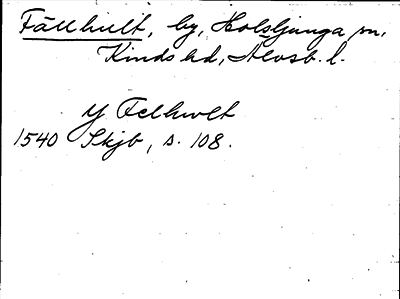 Fällhult, by, Holsljunga sn,
Kinds hd, Älvsb. l.
y Felhwlt
1540 Skjb, s. 108.